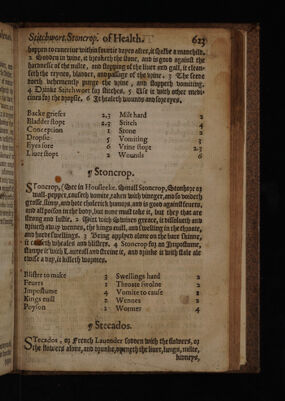 Stitchwort. Stoncrop. of Health. 623
happen to conceive within fourtie dayes after, it shalbe a manchild.
2 Sodden in wine, & drenketh the stone, and is good against the
hardnesse of the milte, and stopping of the liver and gall, it clean-
seth the reynes, bladder, and passage of the vrine. 3 The seede
doeth vehemently purge the vrine, and stoppeth vomiting.
4 Drinke Stitchwort for stitches. 5 Use it with other medi-
cines for the dropsie. 6 It healeth wounds and sore eyes.
Backe griefes 2,3
Bladder stopt 2.3
Conception 1
Dropsie 5
Eyes sore 6
Liuer stopt 2
Milt hard 2
Stitch 4
Stone 2
Vomiting 3
Vrine stopt 2.3
Wounds 6
¶ Stoncrop.
Stoncrop, (See in Housleeke. Small Stoncrop, Stonhore or
wall-pepper, causeth vomite, taken with vineger, and so voideth
grosse, slimy, and hote cholerick humors, and is good against feuers,
and all poison in the body, but none must take it, but they that are
strong and lustie. 2 Spirt with Swines grease, it dissolueth and
driueth away wennes, the kings euill, and swelling in the throate,
and hard swellings. 3 Being applyed alone on the bare skinne,
it causeth wheales and blisters. 4 Stoncrop for an Impostume,
stampe it with Laurell and streine it, and drinke it with stale ale
twise a day, it killeth wormes.
Blister to make 3
Feuers 1
Impostume 4
Kings euill 2
Poyson 1
Swellings hard 2
Throate swolne 2
Vomite to cause 1
Wennes 2
Wormes 4
¶ Stecados.
Stecados, or French Lauender sodden with the flowers, or
the flowers alone, and drunke, openeth the liuer, lungs, milte,
kidneys,